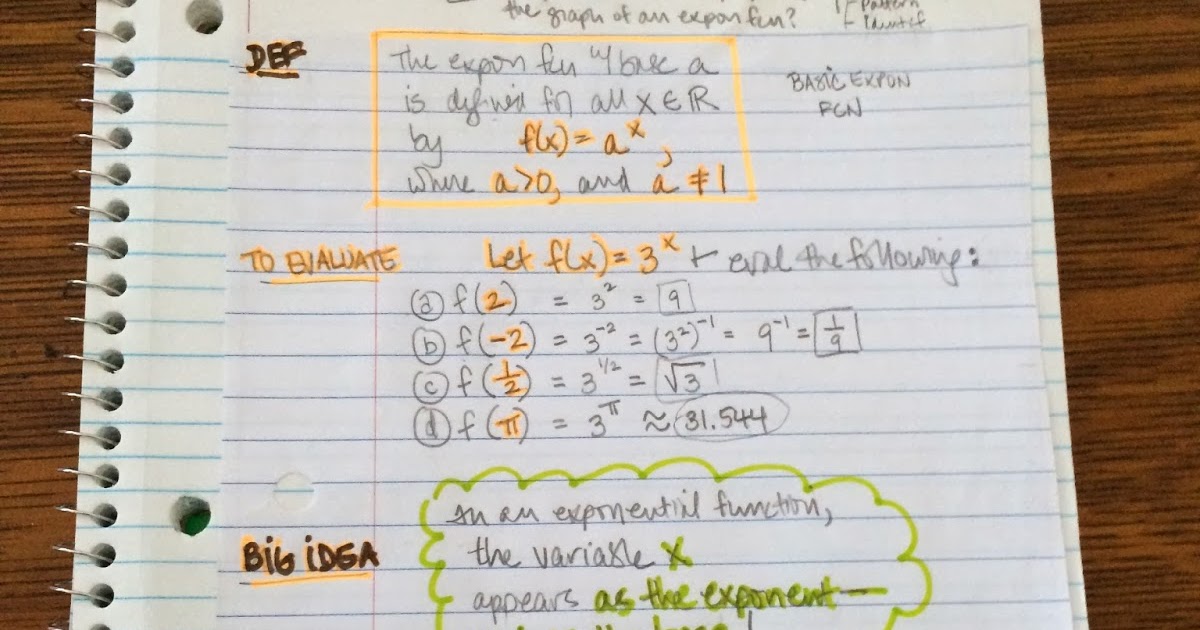 the graph of an expon fcn?
Pattern
Identif
DEF
The expon fcn w/ base a
is defined for all x ∈ ℝ
by f(x) = a^x,
where a>0, and a ≠ 1
BASIC EXPON
FCN
TO EVALUATE Let f(x) = 3^x + eval the following:
(a) f(2) = 3^2 = 9
(b) f(-2) = 3^-2 = (3^2)^-1 = 9^-1 = 1/9
(c) f(1/2) = 3^1/2 = √3
(d) f(π) = 3^π ≈ 31.544
BIG IDEA
In an exponential function,
the variable x
appears as the exponent —